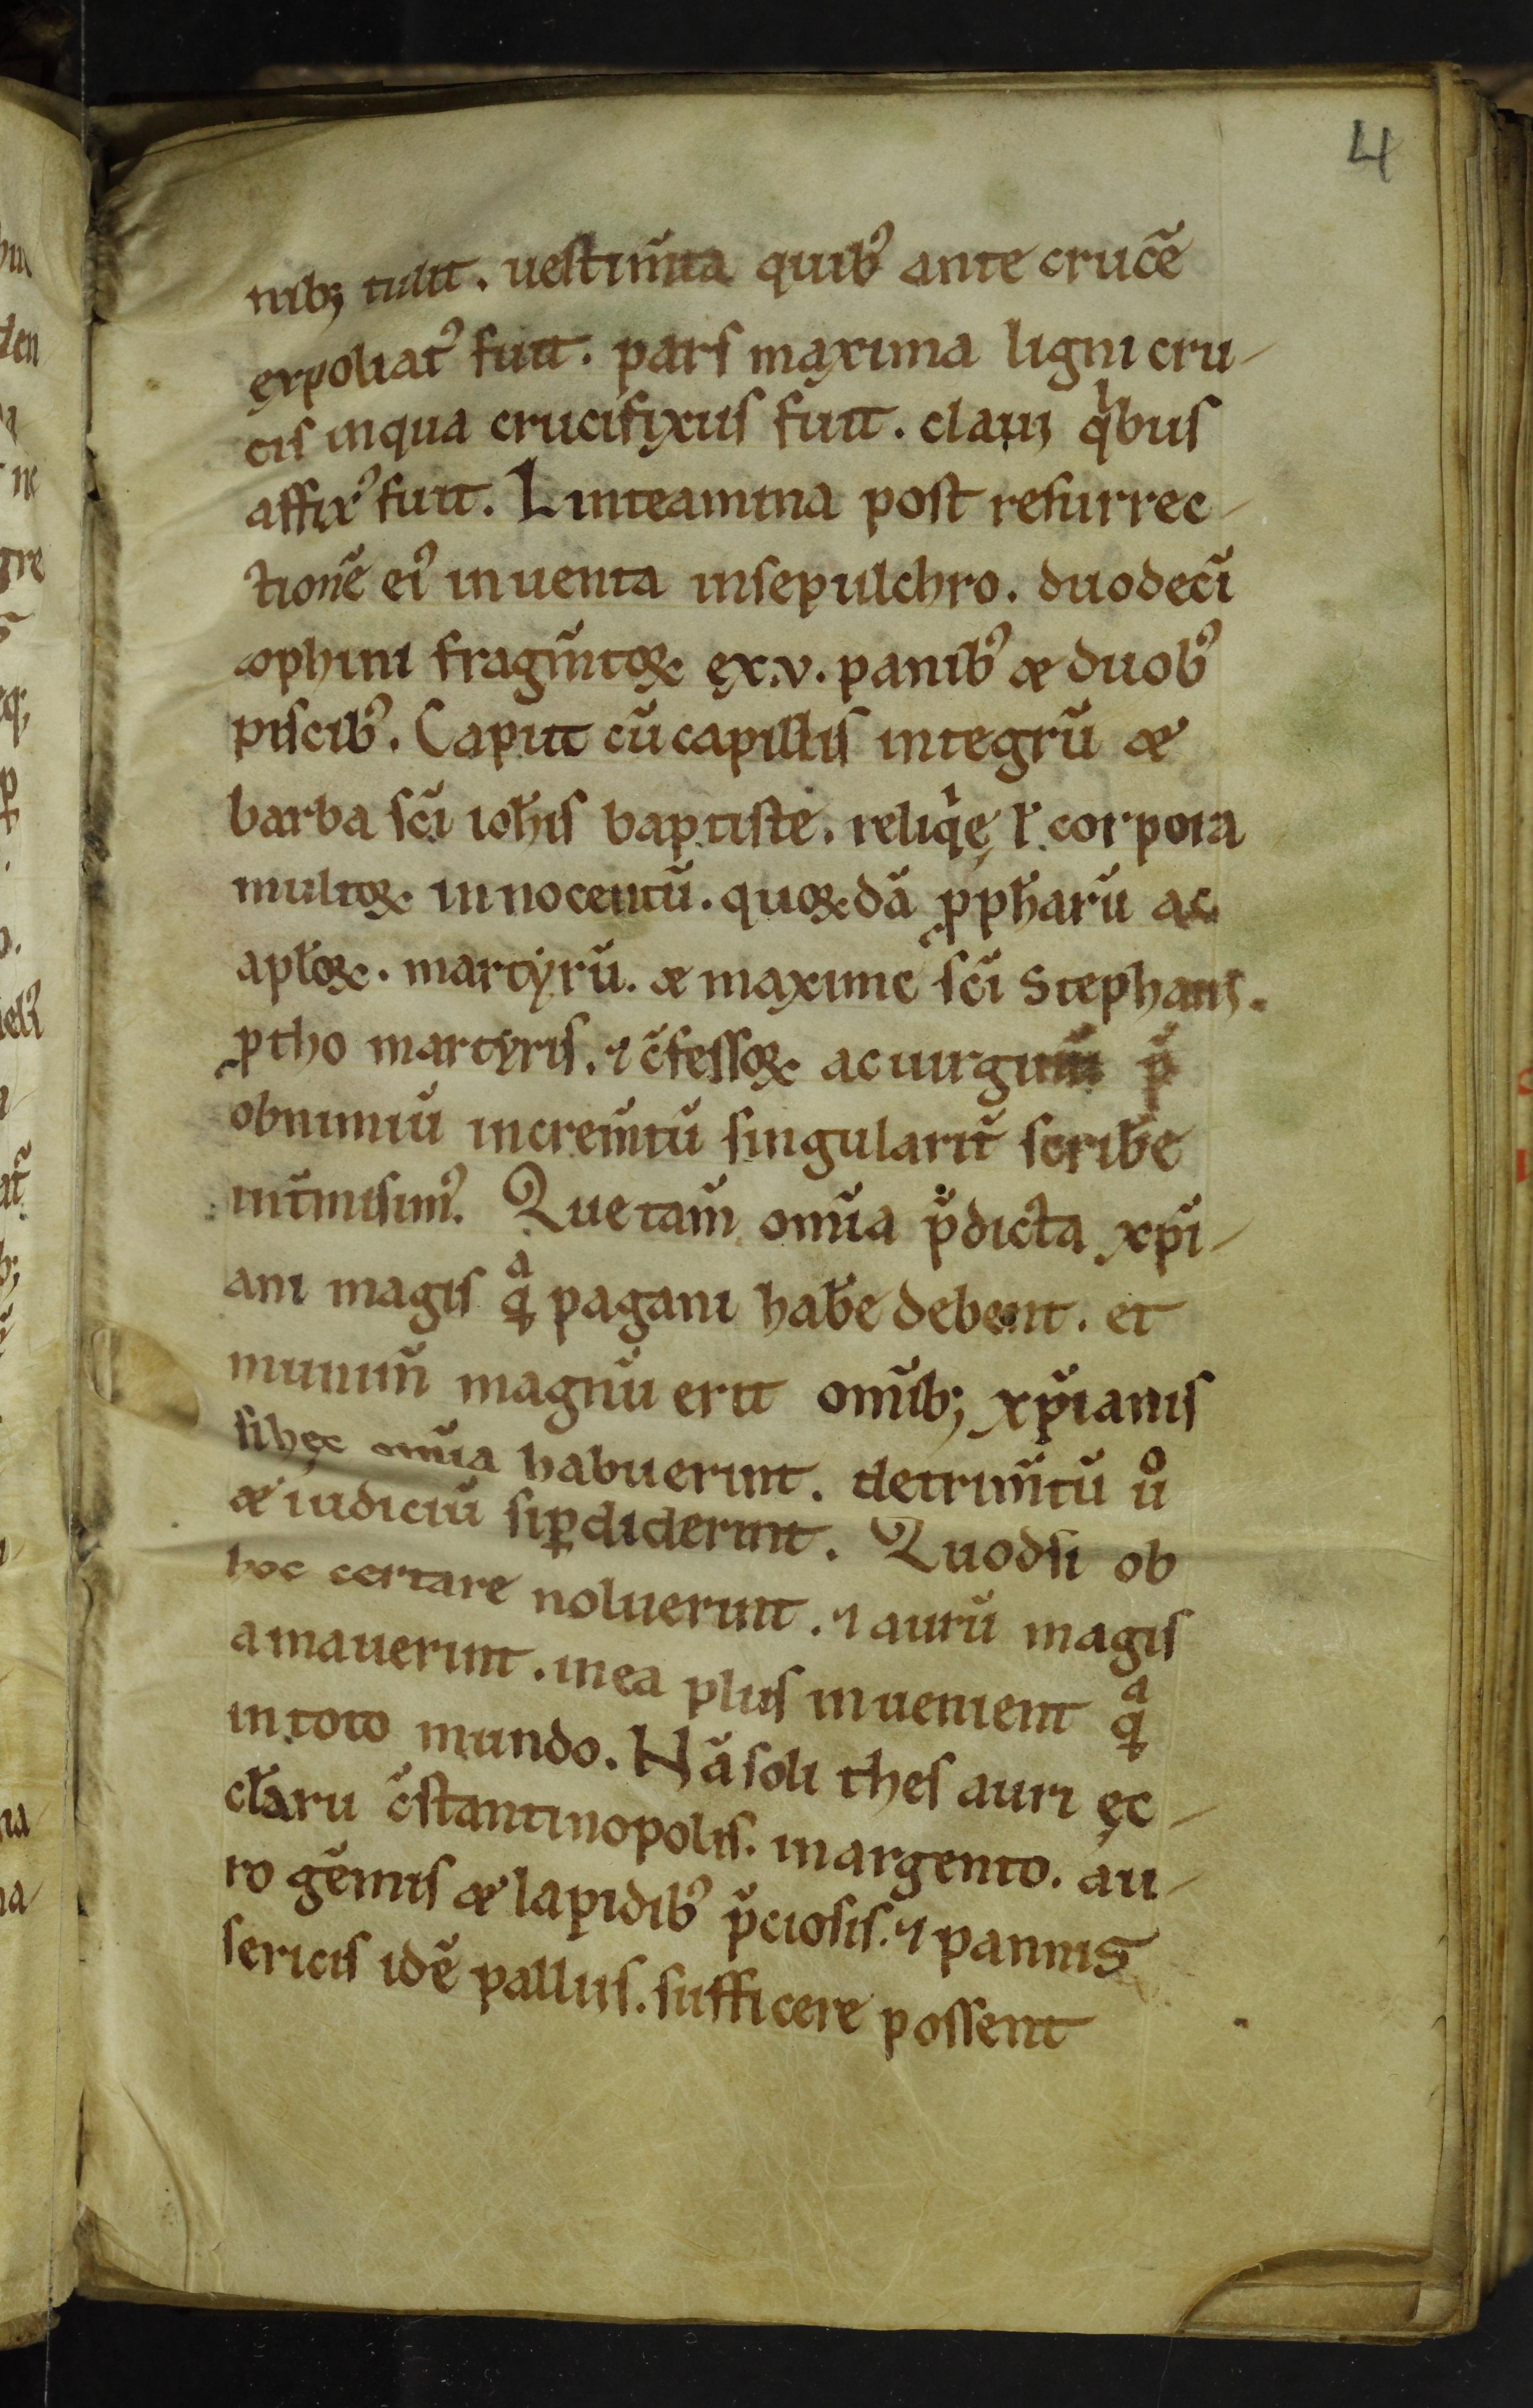 4
nib; tulit. uestim̃ta quib᾽ ante crucẽ
expoliat᾽ fuit. pars maxima ligni cru-
cis inqua crucifixus fuit. claui qͥbus
affix᾽ fuit. Linteamina post resurrec-
tionẽ ei᾽ inuenta insepulchro. duodecĩ
cophini fragm̃toꝝ ex.v. panib᾽ & duob᾽
piscib᾽. Caput cũ capillis integrũ &
barba sc̃i ioh̃is baptiste. reliqͥę ł corpora
multoꝝ innocentũ. quoꝝdã ꝓph̃arũ ac
apl̃oꝝ. martyrũ. & maxime sc̃i Stephani.
ꝓtho martyris. ⁊ c̃fessoꝝ ac uirginũ
obnimiũ increm̃tũ singularit̃ scrib̃e
int̃misim᾽. Que tam̃ om̃ia p̃dicta xp̃i-
ani magis qᷓ pagani hab̃e debent. et
munim̃ magnũ erit om̃ib; xp̃ianis
si hęc om̃ia habuerint. detrim̃tũ uͦ
& iudiciũ si ꝑdiderint. Quodsi ob
hoc certare noluerint. ⁊ aurũ magis
amauerint. in ea plus inuenient qᷓ
intoto mundo. Nã soli thesauri ęc-
cl̃aru c̃stantinopolis. in argento. au-
ro gẽmis & lapidib᾽ p̃ciosis. ⁊ pannis
sericis idẽ palliis. sufficere possent